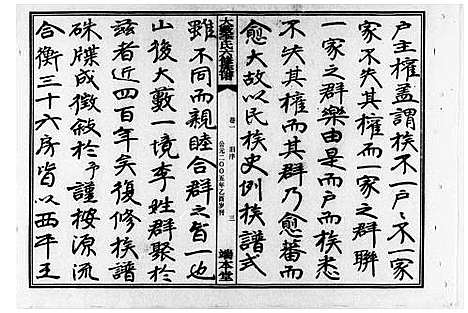 户主權盖謂族不一户户不一家
家不失其權而一家之群聯
一家之群樂由是而户而族悉
不失其權而其群乃愈蕃而
愈大故以民族史例族譜式
卷一 旧序 三
公元二00五年乙酉岁刊
端本堂
雖不同而親睦合群之旨一也
山後大藪一境李姓群聚於
兹者近四百年矣復修族譜
硃牒成徵敍於予謹按源流
合衡三十六房皆以西平王